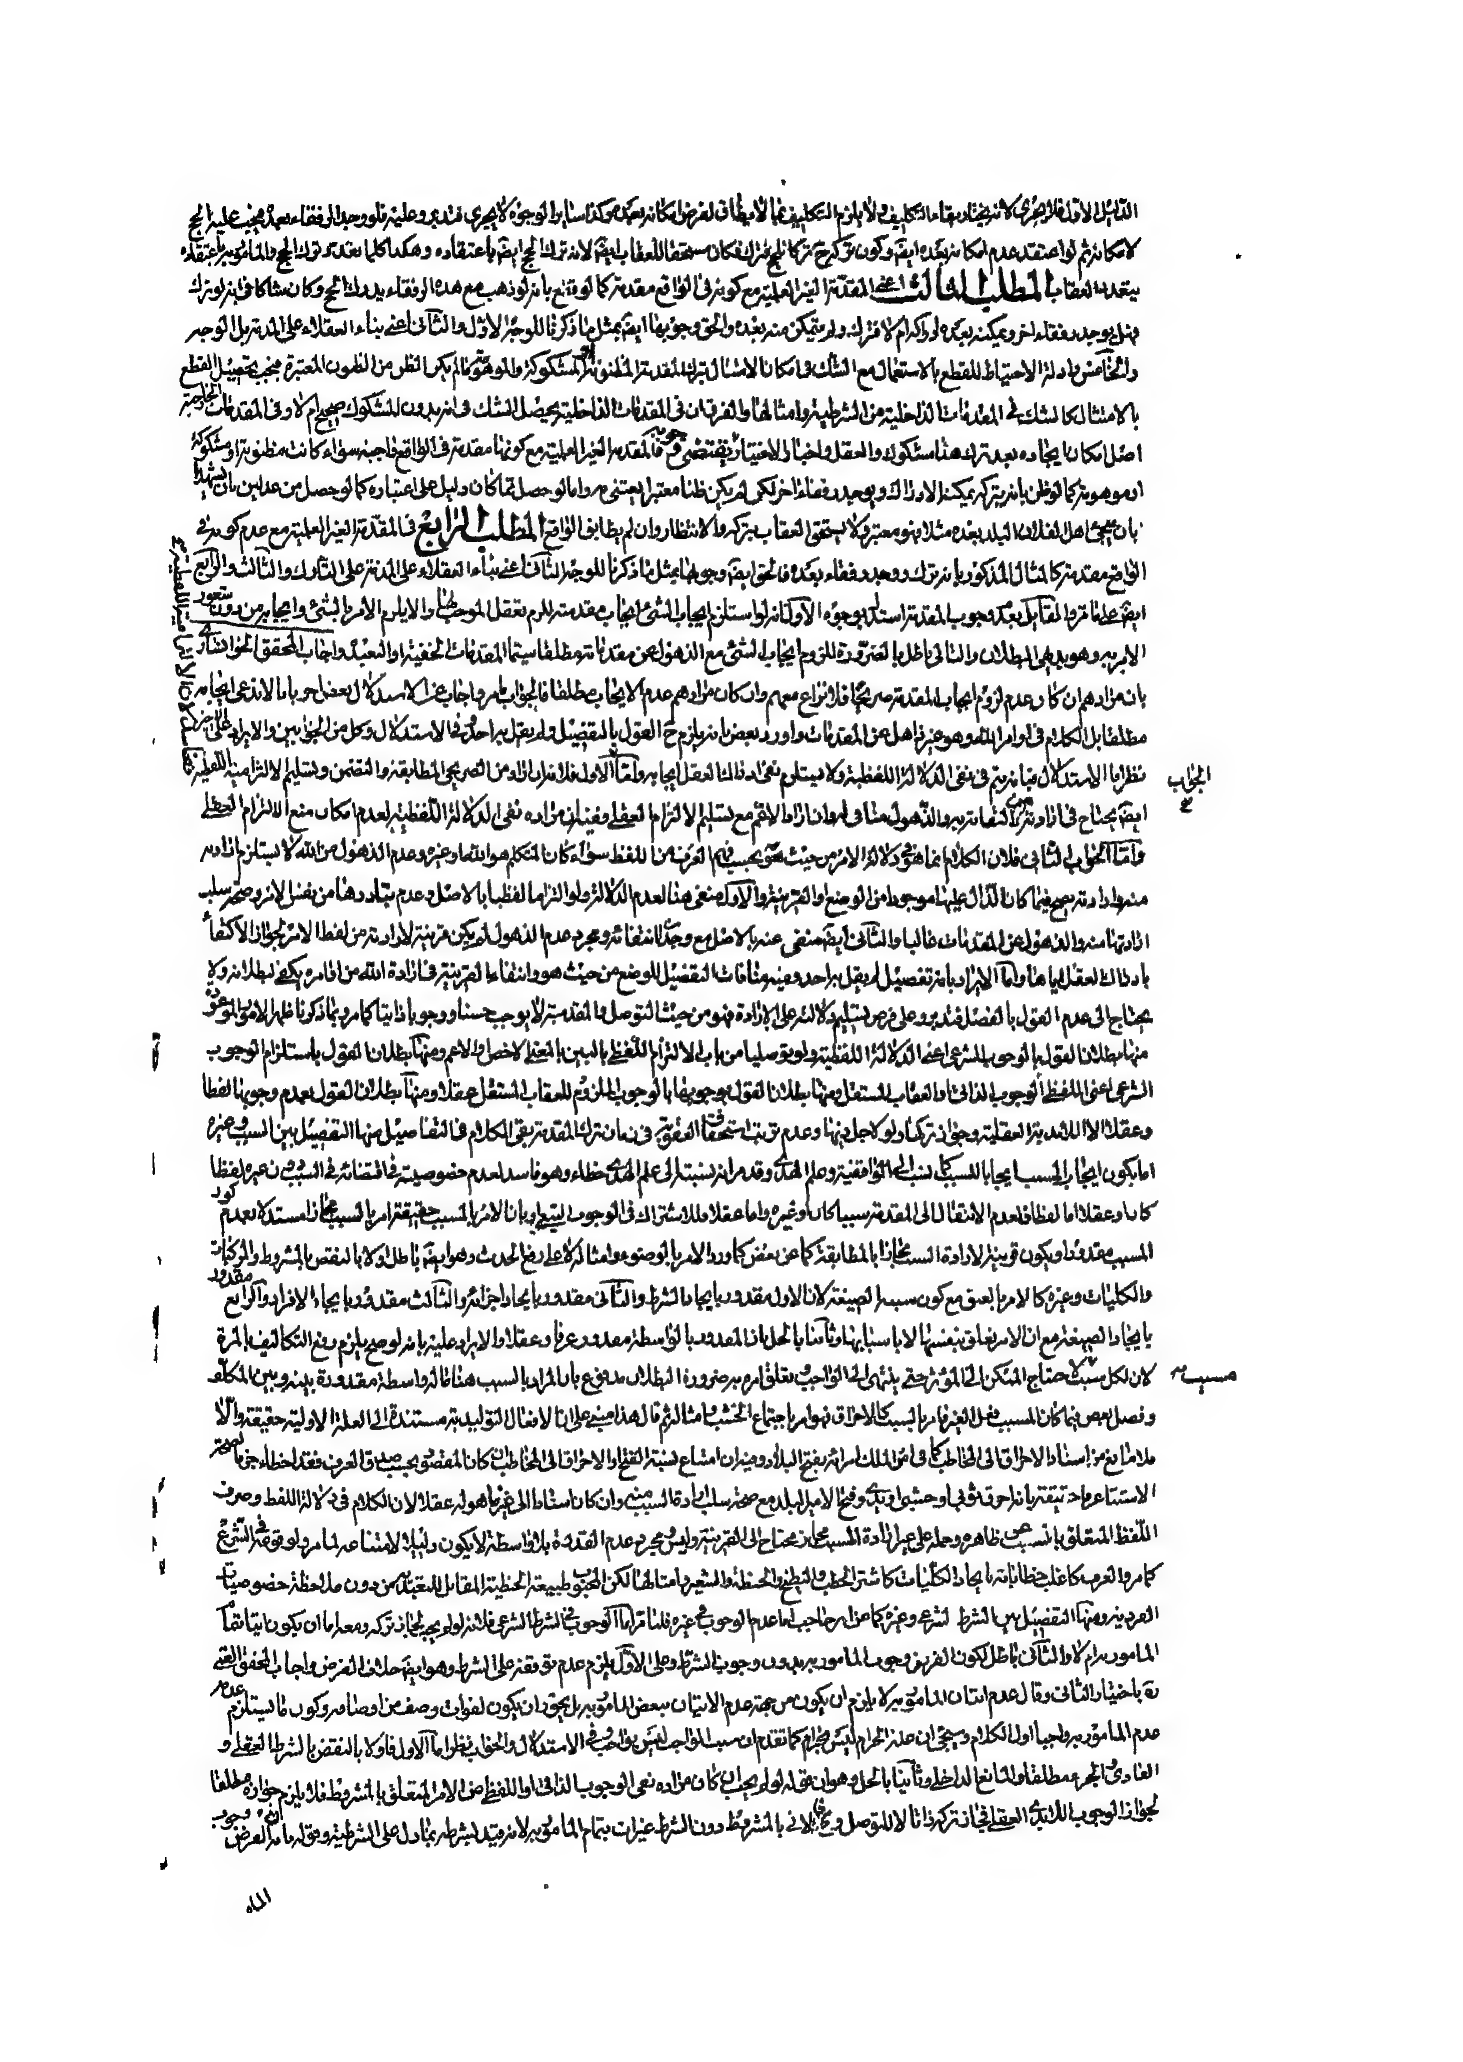 الدليل الاول فلا يجرى لانه يختار بقاء التكليف ولا يلزم التكليف بما لا يطاق لفرض امكانه بعده وكذا ساير الوجوه لا يجرى فتدبر وعليه فلو وجد الرفقاء بعده فيجب عليه الحج
لامكانه ثم لو اعتقد عدم امكانه بعده ايضا وكون تركه ترك الحج فترك فكان مستحقا للعقاب ايضا لانه ترك الحج ايضا باعتقاده وهكذا كلما تعدد ترك الحج والمامور به باعتقاده
يتعدد العقاب المطلب الثالث اعنى المقدمة الغير العلمية مع كونه فى الواقع مقدمة كما لو قطع بانه لو ذهب مع هذه الرفقاء يدرك الحج وكان شاكا فى انه لو ترك
فهل يوجد رفقاء اخر ويمكنه بعده ادراكه ام لا فترك ولم يتمكن منه بعده والحق وجوبها ايضا بمثل ما ذكرنا للوجه الاول والثانى اعنى بناء العقلاء على المذمة بل الوجه
والخامس وادلة الاحتياط للقطع بالاشتغال مع الشك فى امكان الامتثال بترك المقدمة المظنونة او المشكوكة والموهومة ما لم يكن الظن من الظنون المعتبرة فيجب تحصيل القطع
بالامتثال كالشك فى المقدمات الداخلية من الشرطية وامثالها والفرق ان فى المقدمات الداخلية يحصل الشك فى انه بدون المشكوك صحيح ام لا وفى المقدمات الخارجية
اصل امكان ايجاده بعد ترك هذا مشكوك والعقل واخبار الاحتياط يقتضى وجوبه فالمقدمة الغير العلمية مع كونها مقدمة فى الواقع واجبة سواء كانت مظنونة او مشكوكة
او موهومة كما لو ظن بانه بتركه يمكنه الادراك ويوجد رفقاء اخر لكن لم يكن ظنا معتبرا يعتنى به واما لو حصل مما كان دليل على اعتباره كما لو حصل من عدلين بان يشهدا
بان يجئ اهل الفلان البلد بعده مثلا فهو معتبر ولا يستحق العقاب بتركه والانتظار وان لم يطابق الواقع المطلب الرابع فى المقدمة الغير العلمية مع عدم كونه فى
الواقع مقدمة كالمثال المذكور بانه ترك ووجد رفقاء بعده فالحق ايضا وجوبها بمثل ما ذكرنا للوجه الثانى اعنى بناء العقلاء على المذمة على التارك والثالث والرابع
ايضا على ما مر والمقابل بعدم وجوب المقدمة استدل بوجوه الاول انه لو استلزم ايجاب الشئ ايجاب مقدمته للزم تعقل الموجب لها والا يلزم الامر بالشئ وايجابه من دون شعور
الامر به وهو بديهى البطلان والتالى باطل بالضرورة للزوم ايجاب الشئ مع الذهول عن مقدماته مطلقا سيما المقدمات الخفية او البعيدة واجاب المحقق الخوانسارى
بانه مرادهم ان كان عدم لزوم ايجاب المقدمة صريحا فلا نزاع معهم وان كان مرادهم عدم الايجاب مطلقا فالجواب ما مر واجاب عن الاستدلال بعض اجوبة ما لا ندعى ايجابه
مطلقا بل الكلام فى اوامر الله وهو غير ذاهل عن المقدمات واورد بعض بانه يلزم ح القول بالتفصيل ولم يقل به احد وفى الاستدلال وكل من الجوابين والايراد
نظر اما الاستدلال فبانه يتم فى نفى الدلالة اللفظية ولا يستلزم نفى ادراك العقل ايجابه واما الاول فلانه ان اراد من الصريحى المطابقة والتضمن وتسليم الالتزامية اللفظية
ايضا يحتاج فى ارادته من التفاته به والذهول مناف له وان اراد الاعم مع تسليم الالتزام العقلى ففيه ان مراده نفى الدلالة اللفظية لعدم امكان منع الالتزام العقلى
واما الجواب الثانى فلان الكلام انما هو فى دلالة الامر من حيث هو بحسب فهم العرف من اللفظ سواء كان المتكلم هو الله او غيره وعدم الذهول من الله لا يستلزم ارادته
منه وارادته يصح فيما كان الدال عليها موجودا من الوضع او القرينة والاول منفى هنا لعدم الدلالة ولو التزاما لفظيا بالاصل وعدم تبادرها من نفس الامر وصحة سلب
ارادتها منه والذهول عن المقدمات غالبا والثانى ايضا منفى عنه بالاصل مع وجدان انتفائه ومجرد عدم الذهول لم يكن قرينة لارادته من لفظ الامر لجواز الاكتفاء
بادراك العقل اياها واما الايراد بانه تفصيل لم يقل به احد ففيه منافات التفصيل للوضع من حيث هو وانتفاء القرينة فى ارادة الله من اوامره يكفى لبطلانه ولا
يحتاج الى عدم القول بالفصل فتدبر وعلى فرض تسليم دلالته على الارادة فهو من حيث التوصل فالمقدمة لا يوجب حسنا ووجوبا ذاتيا كما مر وبما ذكرنا ظهر الامور الموعودة
منها بطلان القول بالوجوب الشرعى اعنى الدلالة اللفظية ولو توصليا من باب الالتزام اللفظى بالبين بالمعنى الاخص او الاعم ومنها بطلان القول باستلزام الوجوب
الشرعى اعنى اللفظى الوجوب الذاتى والعقاب المستقل ومنها بطلان القول بوجوبها بالوجوب الملزوم للعقاب المستقل عقلا ومنها بطلان القول بعدم وجوبها لفظا
وعقلا الا اللابدية العقلية وجواز تركها ولو لاجل فيها وعدم ترتب استحقاق العقوبة فى زمان ترك المقدمة بقى الكلام فى التفاصيل منها التفصيل بين السبب وغيره
اما بكون ايجاب المسبب ايجابا للسبب كما نسب الى الواقفية وعلم الهدى وقد مر ان نسبته الى علم الهدى خطاء وهو فاسد لعدم خصوصية فى اقتضائه فى السبب دون غيره لفظا
كان او عقلا اما لفظا فلعدم الانتقال الى المقدمة سببا كان او غيره واما عقلا فللاشتراك فى الوجوب التبعى او بان الامر بالمسبب حقيقة امر بالسبب مجازا مستدلا بعدم كون
المسبب مقدورا ويكون قرينة لارادة السبب مجازا بالمطابقة كما عن بعض كما ورد الامر بالوضوء وامثاله لا على رفع الحدث وهو ايضا باطل اولا بالنقض بالمشروط والمركبات
والكليات وغيره كالامر بالعتق مع كون سببه الصيغة لان الاول مقدور بايجاد الشرط والثانى مقدور بايجاد اجزائه والثالث مقدور بايجاد الافراد والرابع مقدور
بايجاد الصيغة مع ان الامر تعلق بنفسها لا باسبابها وثانيا بالحل بان المقدور بالواسطة مقدور عرفا وعقلا والايراد عليه بانه لو صح يلزم رفع التكاليف بالمرة
لان لكل سبب لاحتياج الممكن الى المؤثر حتى ينتهى الى الواجب وتعلق امره به ضرورة البطلان مدفوع بان المراد بالسبب هنا ماله واسطة مقدورة بينه وبين المكلف
وفصل بعض فيما كان المسبب فعل الغير فامر بالسبب كالاحراق فهو امر باجتماع الخشب وامثاله ثم قال هذا مبنى على ان الافعال التوليدية مستندة الى العلة الاولية حقيقة والا
فلا مانع من اسناد الاحراق الى المخاطب كما فى امر الملك امرائه بفتح البلاد وفيه ان امتناع نسبة الفتح او الاحراق الى المخاطب ان كان المقصود بحسب صدق العرف فقد اخطاء جزما لصحة
الاسناد عرفا حقيقة بانه احرق ثوبى او خشبى او يدى وفتح الامير البلد مع صحة سلب ارادة السبب منه وان كان اسنادا الى غير ما هو له عقلا لان الكلام فى دلالة اللفظ وصرف
اللفظ المتعلق بالمسبب عن ظاهره وحمله على غير ارادة المسبب مجاز محتاج الى القرينة وليس ومجرد عدم القدرة بلا واسطة لا يكون دليلا لامتناعه لما مر ولوقوعه فى الشرع
كما مر والعرف كاغلب خطاباته بايجاد الكليات كاشتر الحطب والبطيخ والحنطة والشعير وامثالها لكن المحبوب طبيعة الحنطية المقابل للتقييد من دون ملاحظة خصوصيات
الفردية ومنها التفصيل بين الشرط الشرعى وغيره كما عن ابن حاجب اما عدم الوجوب فى غيره فلما مر اما الوجوب فى الشرط الشرعى فلانه لو لم يجب لجاز تركه ومعه اما ان يكون اتيا بتمام
المامور به ام لا والثانى باطل لكون الفرض وجوب المامور به بدون وجوب الشرط وعلى الاول يلزم عدم توقفه على الشرط وهو ايضا خلاف الفرض واجاب المحقق القمى
ره باختيار الثانى وقال عدم اتيان المامور به لا يلزم ان يكون من جهة عدم الاتيان ببعض المامور به بل يجوز ان يكون لفوات وصف من اوصافه وكون ما يستلزم عدمه
عدم المامور به واجبا اول الكلام وسيجئ ان علة الحرام ليس بحرام كما تقدم ان سبب الواجب ليس بواجب وفى الاستدلال والجواب نظر اما الاول فاولا بالنقض بالشرط العقلى و
العادى والجزء مطلقا والمانع الداخلى وثانيا بالحل وهو ان قوله لو لم يجب ان كان مراده نفى الوجوب الذاتى او اللفظى من الامر المتعلق بالمشروط فلا يلزم جوازه مطلقا
لجواز الوجوب اللابدى العقلى فى انه تركه ذاتا لا للتوصل و الاتى بالمشروط دون الشرط غير ات بتمام المامور به لانه قيد بشرطه بما دل على الشرطية وقوله ما هو الفرض وجوب
الجواب
مسبب
الماه